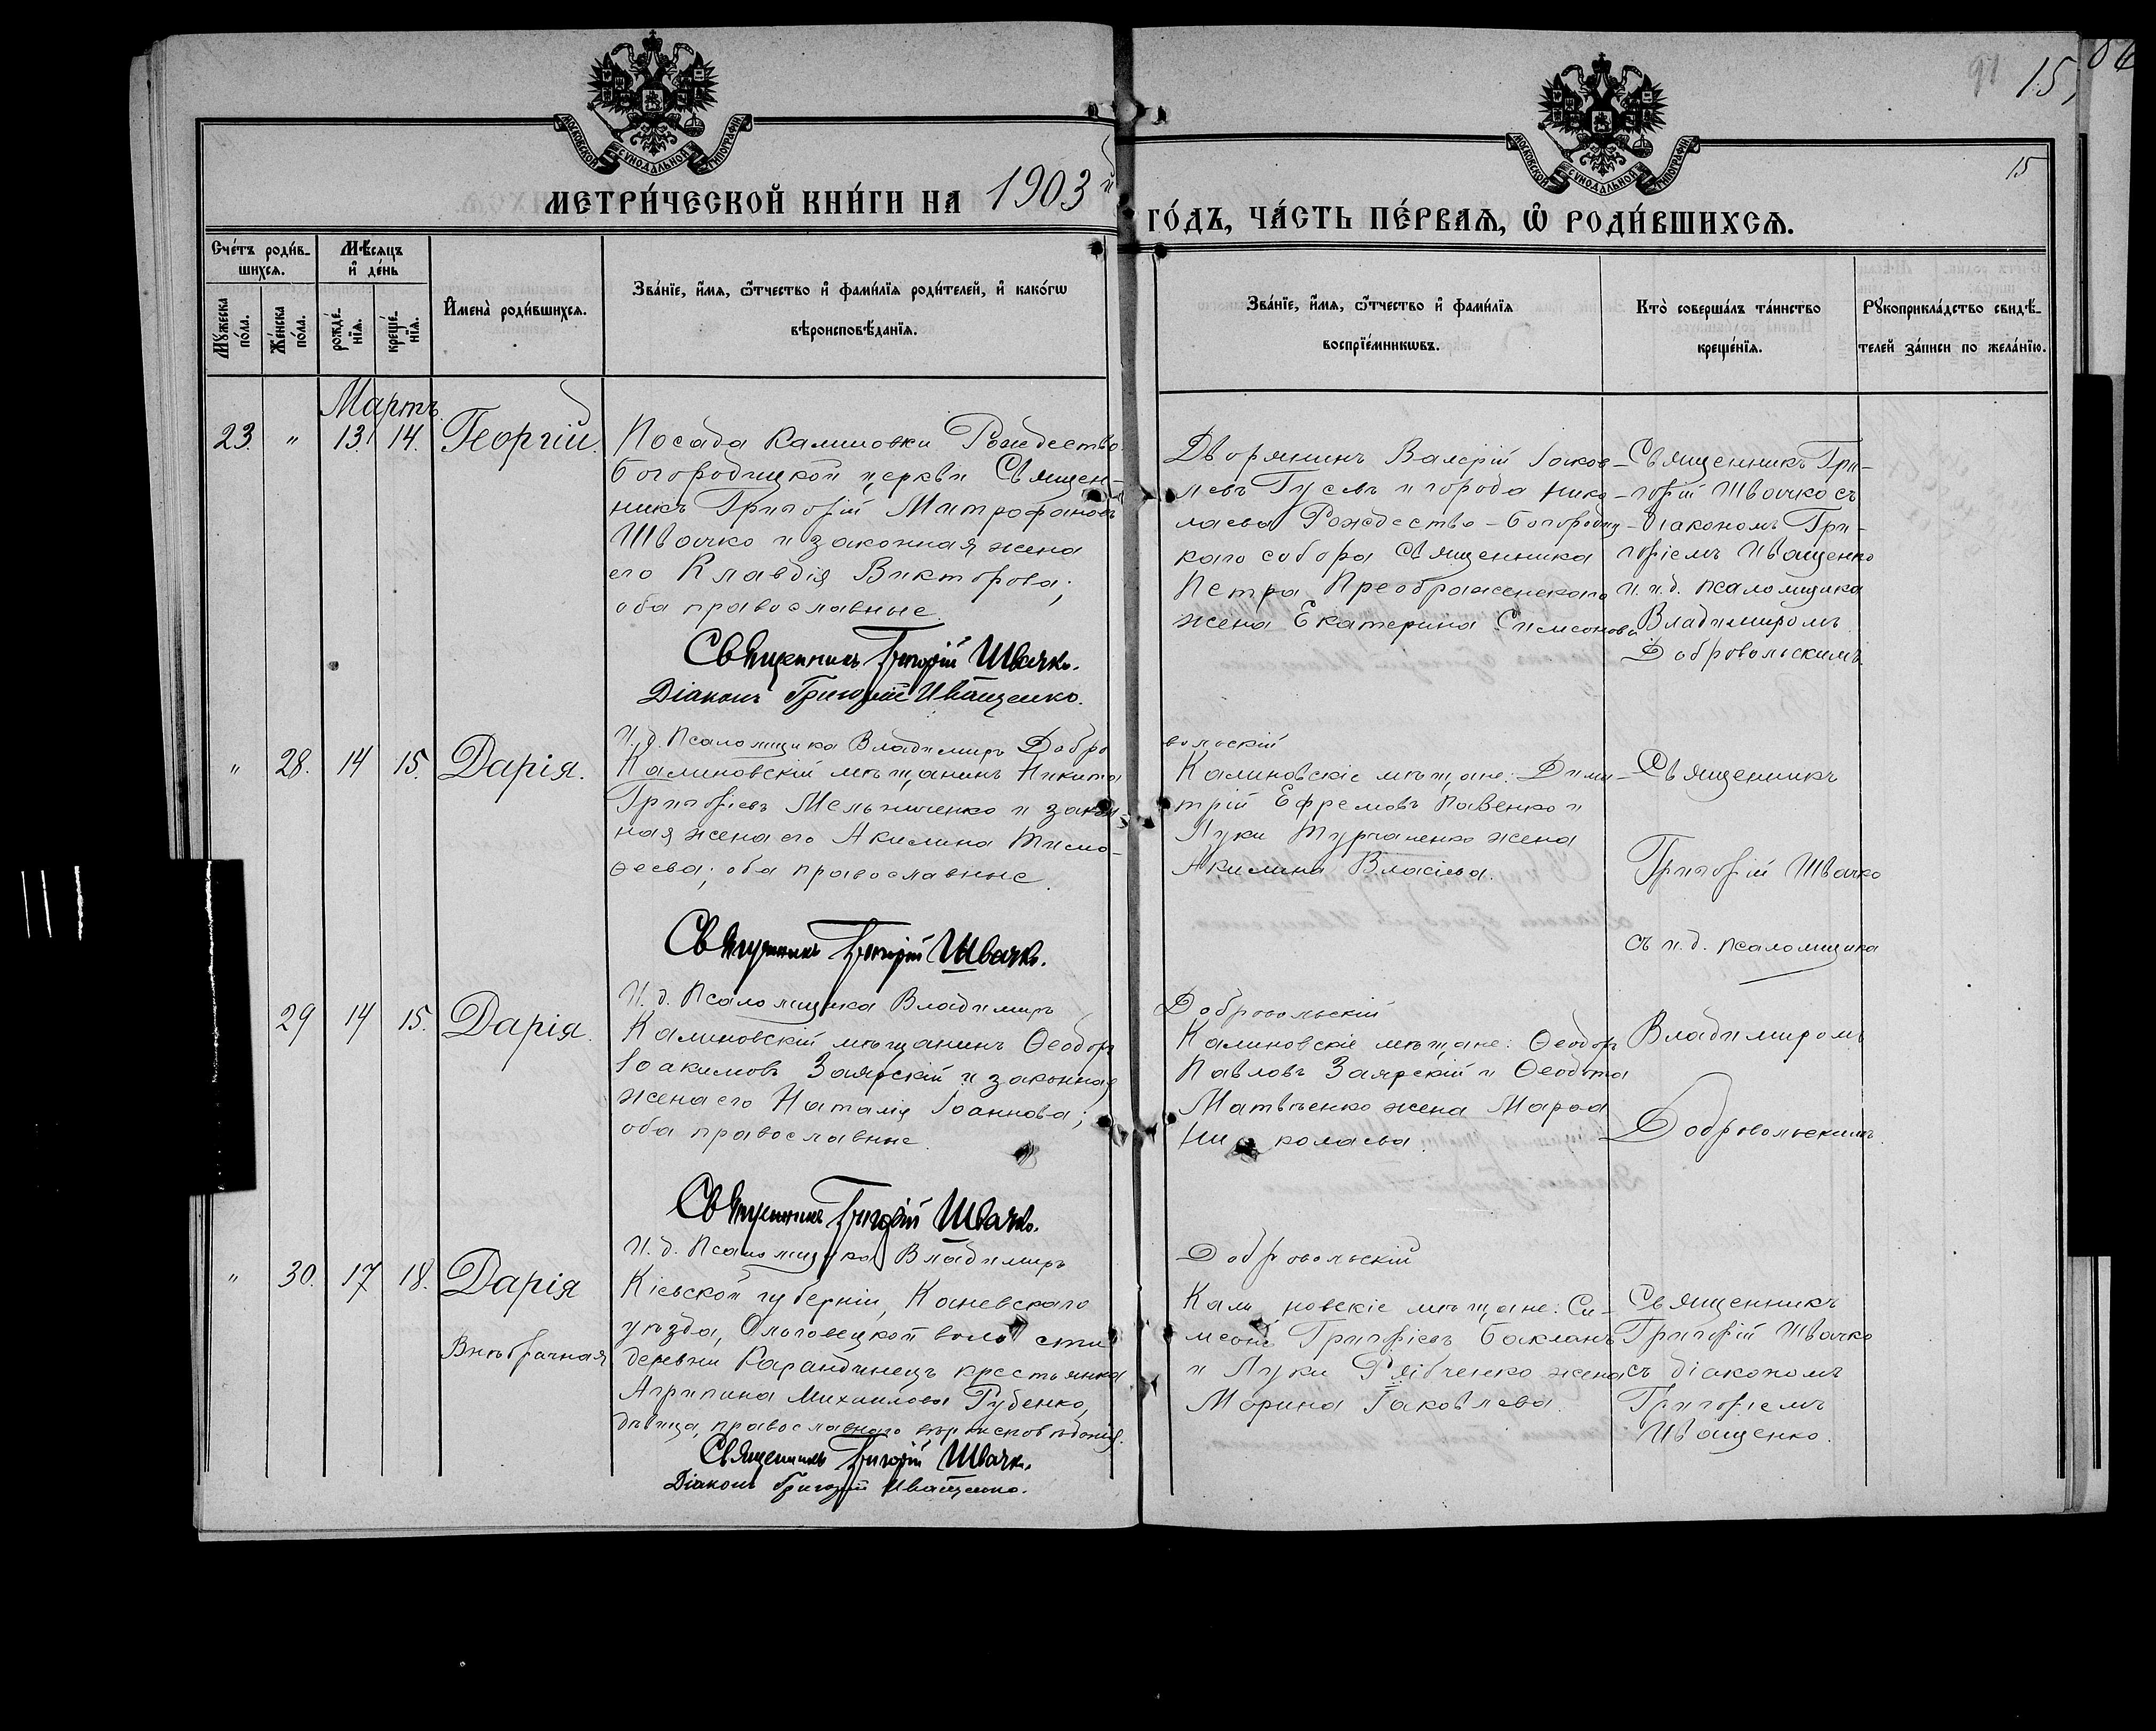 МОСКОВСКОЙ СѴНОДАЛЬНОЙ ТИПОГРАФІИ
МОСКОВСКОЙ СѴНОДАЛЬНОЙ ТИПОГРАФІИ
91 15
15
МЕТРИ́ЧЕСКОЙ КНИ́ГИ НА 1903 й
ГО́ДЪ, ЧА́СТЬ ПЕ́РВАѦ, Ѡ҆ РОДИ́ВШИХСѦ.
Сче́тъ роди́в-
шихсѧ.
Мѣ́сѧцъ
и҆ де́нь
Мꙋ́жеска по́ла.
Же́нска по́ла.
рожде́-нїѧ.
креще́-нїѧ.
И҆мена̀ роди́вшихсѧ.
Зва́нїе, и҆́мѧ, ѻ҆́тчество и҆ фами́лїѧ роди́телей, и҆ како́гѡ
вѣроисповѣ́данїѧ.
Зва́нїе, и҆́мѧ, ѻ҆́тчество и҆ фами́лїѧ
воспрїе́мникѡвъ.
Кто̀ соверша́лъ та́инство
креще́нїѧ.
Рꙋкоприкла́дство свидѣ́-
телей за́писи по жела́нїю.
Мартъ
23. " 13. 14. Георгій.
Посада Калиновки Рождество-
Богородицкой церкви Священ-
никъ Григорій Митрофановъ
Швачко и законная жена
его Клавдія Викторова;
оба православные.
Священникъ Григорій Швачко.
Діаконъ Григорій Иващенко.
Дворянинъ Валерій Іаков-
левъ Гусевъ и города Нико-
лаева Рождество-Богородиц-
каго собора Священника
Петра Преображенскаго
жена Екатерина Симеонова
Священникъ Гри-
горій Швачко съ
діакономъ Гри-
горіемъ Иващенко
и и.д. псаломщика
Владимиромъ
Добровольскимъ.
И.д. Псаломщика Владимиръ Добро
вольскій
" 28. 14 15. Дарія.
Калиновскій мѣщанинъ Никита
Григорьевъ Мельниченко и закон
ная жена его Акилина Тимо-
ѳеева; оба православные.
Священникъ Григорій Швачко.
Калиновскіе мѣщане: Дими-
трій Ефремовъ Павенко и
Луки Турчаненко жена
Акилина Власіева.
Священникъ
Григорій Швачко
съ и.д. псаломщика
И.д. Псаломщика Владимиръ
Добровольскій
29 14 15. Дарія.
Калиновскій мѣщанинъ Ѳеодоръ
Іоакимовъ Заярскій и законная
жена его Наталія Іоаннова;
оба православные.
Священникъ Григорій Швачко.
Калиновскіе мѣщане: Ѳеодоръ
Павловъ Заярскій и Ѳеодота
Матвѣенко жена Марѳа
Николаева.
Владимиромъ
Добровольскимъ.
И.д. Псаломщика Владимиръ
Добровольскій
" 30. 17 18. Дарія
Внѣбрачная
Кіевской губерніи, Каневскаго
уѣзда, волости
деревни Карандинецъ крестьянка
Агрипина Михаилова Губенко,
дѣвица, православнаго вѣроисповѣданія.
Священникъ Григорій Швачко.
Діаконъ Григорій Иващенко.
Калиновскіе мѣщане: Си-
меонъ Григорьевъ Бакланъ
и Луки Рябченко жена
Марина Іаковлева.
Священникъ
Григорій Швачко
съ діакономъ
Григоріемъ
Иващенко.